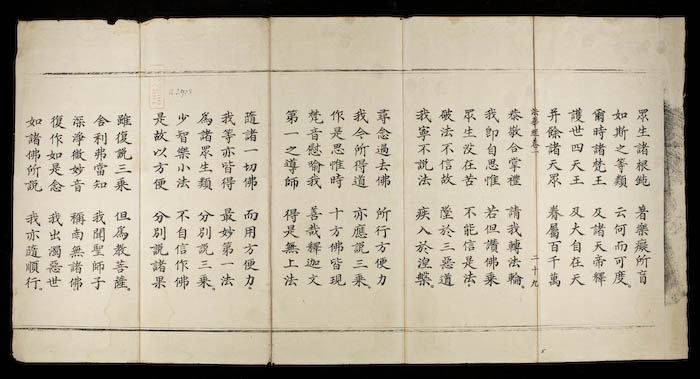 眾生諸根鈍 著樂癡所盲
如斯之等類 云何而可度。
爾時諸梵王 及諸天帝釋
護世四天王 及大自在天
幷餘諸天眾 眷屬百千萬
法華經卷一 二十九
恭敬合掌禮 請我轉法輪。
我即自思惟 若但讚佛乘
眾生沒在苦 不能信是法
破法不信故 墜於三惡道
我寧不說法 疾入於湼槃。
尋念過去佛 所行方便力
我今所得道 亦應說三乘。
作是思惟時 十方佛皆現
梵音慰喻我 善哉釋迦文
第一之導師 得是無上法
隨諸一切佛 而用方便力。
我等亦皆得 最妙第一法
爲諸眾生類 分別說三乘。
少智樂小法 不自信作佛
是故以方便 分別說諸果
雖復說三乘 但爲教菩薩。
舍利弗當知 我聞聖師子
深淨微妙音 稱南無諸佛
復作如是念 我出濁惡世
如諸佛所說 我亦隨順行。